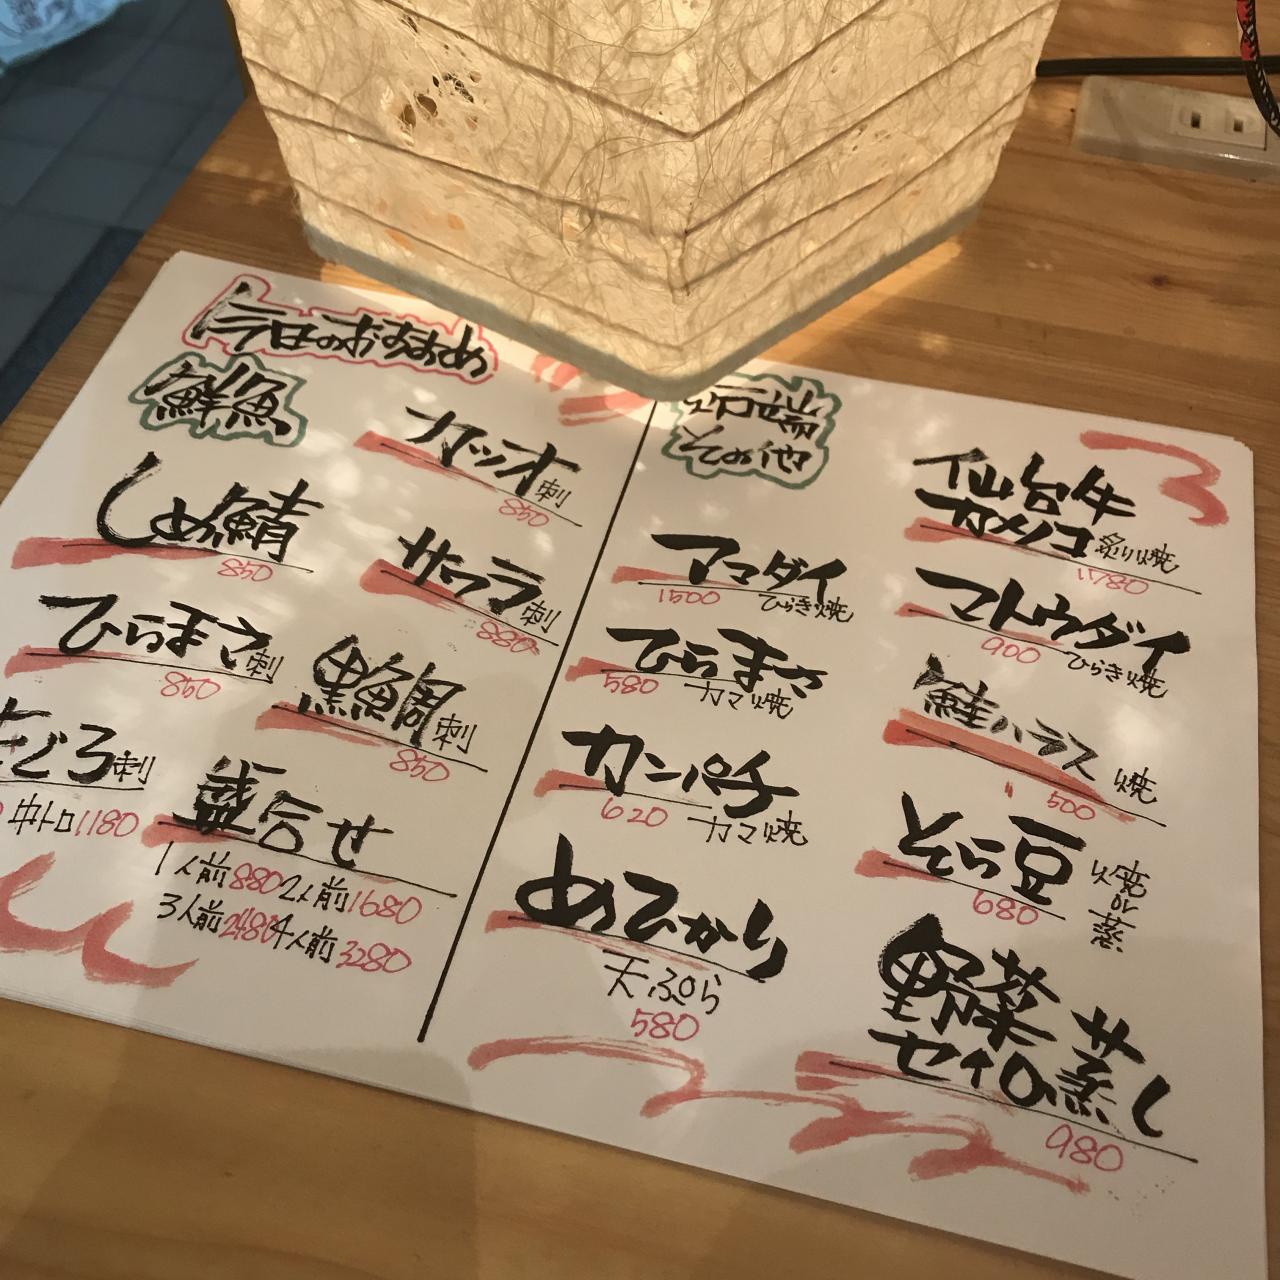 今日のおすすめ
鮮魚
カツオ刺
850
しめ鯖
850
サワラ刺
880
ひらまさ刺
850
黒鯛刺
850
まぐろ刺
中トロ1180
盛合せ
1人前880 2人前1680
3人前2480 4人前3280
炉端
その他
仙台牛
カメノコ炙り焼
1780
アマダイ
1500 ひらき焼
マトウダイ
900 ひらき焼
ひらまさ
580 カマ焼
鮭ハラス 焼
500
カンパチ
620 カマ焼
そら豆 焼or蒸
680
めひかり
天ぷら
580
野菜
セイロ蒸し
980